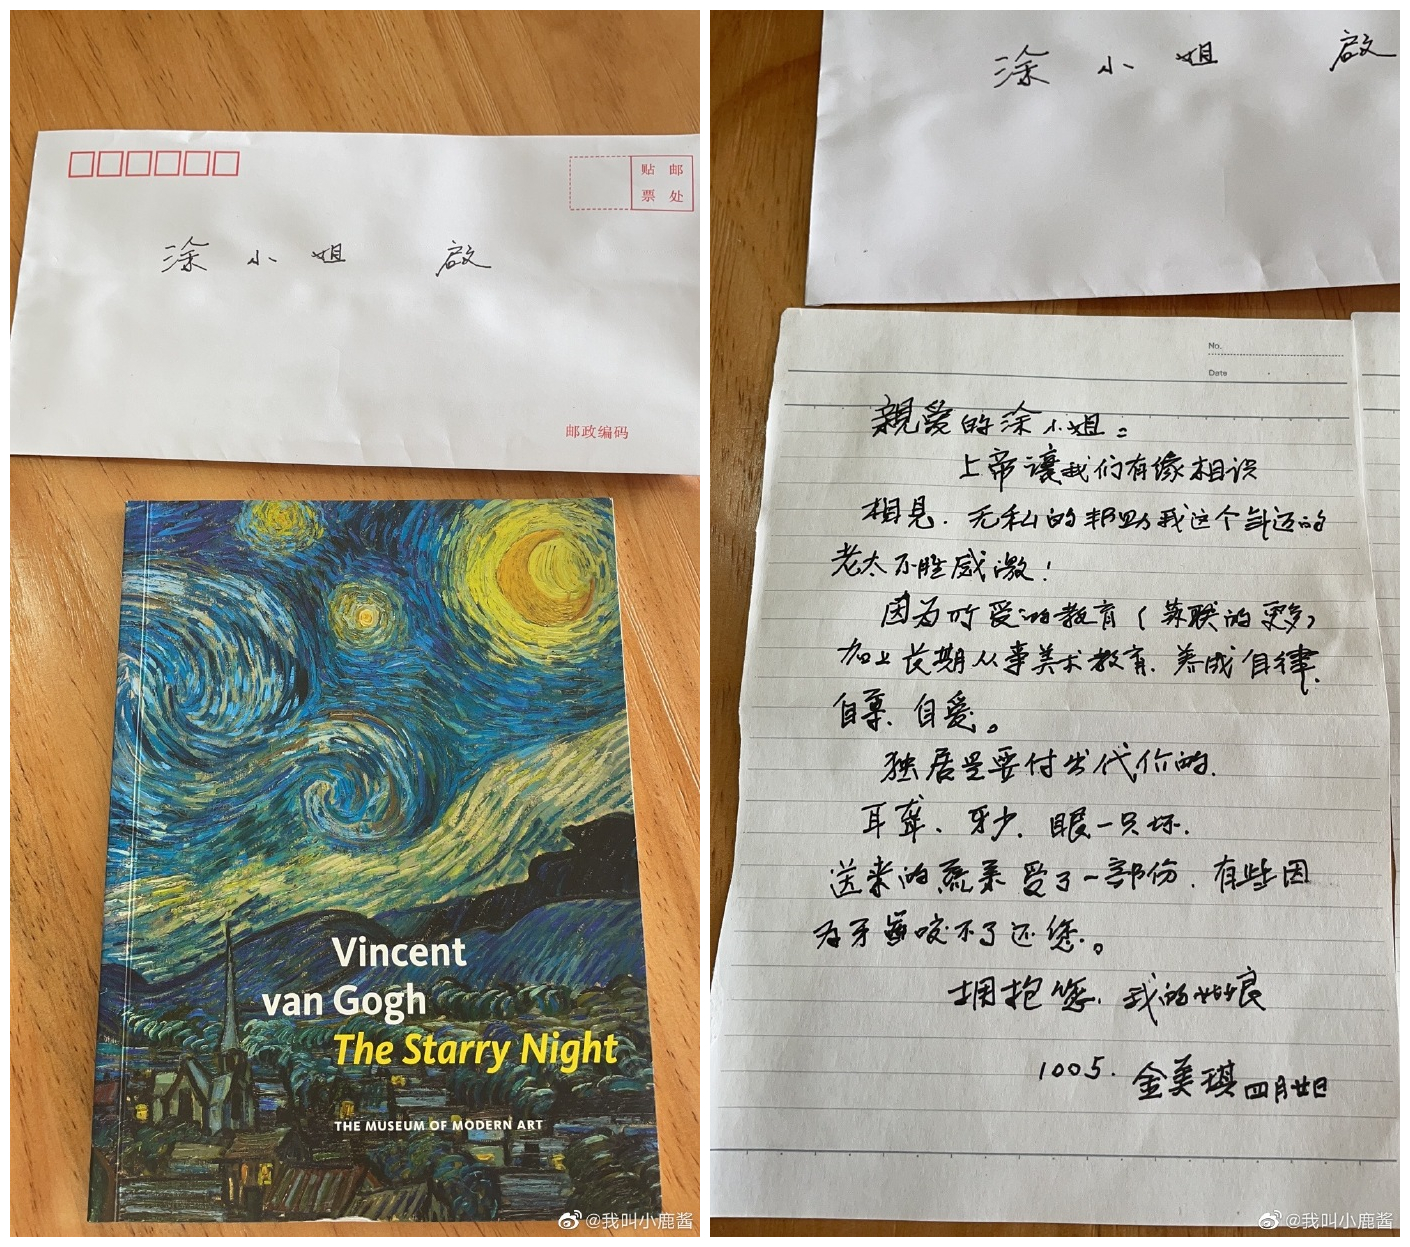 贴 邮
票 处
涂 小 姐 啟
邮政编码
Vincent
van Gogh
The Starry Night
THE MUSEUM OF MODERN ART
@我叫小鹿酱
涂 小 姐 啟
No.
Date
親爱的涂小姐：
上帝讓我们有缘相识
相見．无私的邦助我这个年迈的
老太不胜感激！
因为所受的教育（苏联的更多）
加上长期从事美术教育．养成自律．
自尊．自爱。
独居是要付出代价的．
耳聋、牙少．眼一只坏．
送来的蔬菜受了一部份．有些因
为牙齒咬不了还您。
拥抱您．我的姑娘
1005．金美琪 四月廿日
@我叫小鹿酱